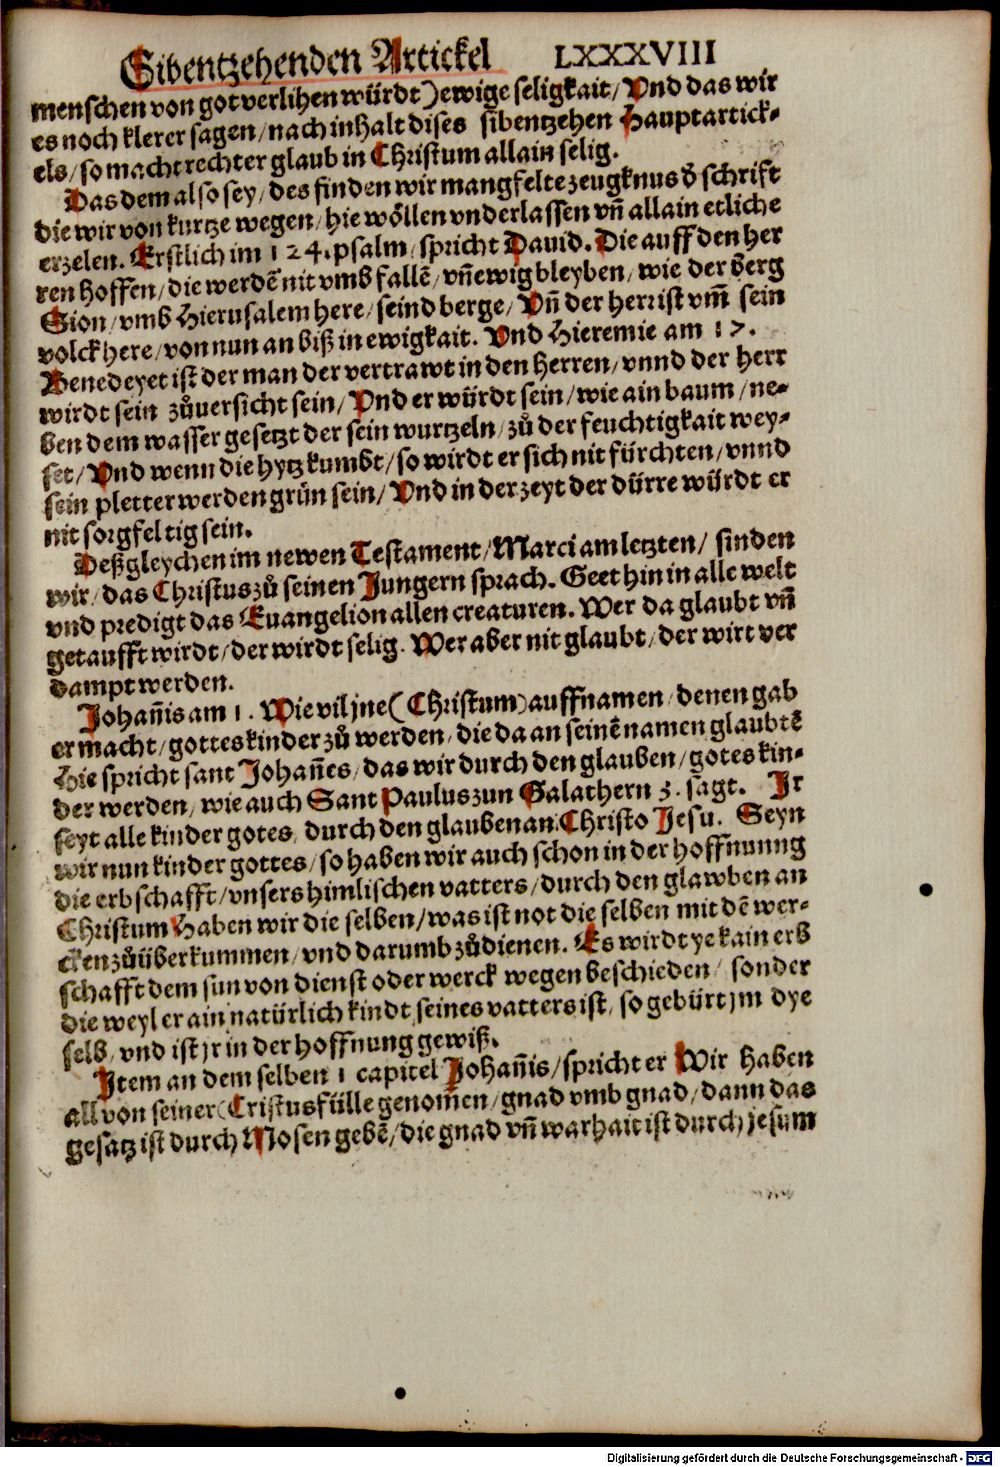 Sibentzehenden Artickel LXXXVIII
menschen von got verlihen würdt) ewige seligkait/ Vnd das wir
es noch klerer sagen/ nach inhalt dises sibentzehen Hauptartick-
els/ so macht rechter glaub in Christum allain selig.
Das dem also sey/ des finden wir mangfelte zeugknus d̄ schrift
die wir von kurtze wegen/ hie wöllen vnderlassen vn̄ allain etliche
erzelen. Erstlich im 124. psalm/ spricht Dauid. Die auff den her
ren hoffen/ die werdē nit vmb fallē/ vn̄ ewig bleyben/ wie der berg
Sion/ vmb Hierusalem here/ seind berge/ Vn̄ der herr ist vm̄ sein
volck here/ von nun an biß in ewigkait. Vnd Hieremie am 17.
Benedeyet ist der man der vertrawt in den Herren/ vnnd der herr
wirdt sein zůuersicht sein/ Vnd er würdt sein/ wie ain baum/ ne-
ben dem wasser gesetzt der sein wurtzeln/ zů der feuchtigkait wey-
set/ Vnd wenn die hytz kumbt/ so wirdt er sich nit fürchten/ vnnd
sein pletter werden grün sein/ Vnd in der zeyt der dürre würdt er
nit sorgfeltig sein.
Deßgleychen im newen Testament/ Marci am letzten/ finden
wir/ das Christus zů seinen Jungern sprach. Geet hin in alle welt
vnd predigt das Euangelion allen creaturen. Wer da glaubt vn̄
getaufft wirdt/ der wirdt selig. Wer aber nit glaubt/ der wirt ver
dampt werden.
Johan̄is am 1. Wie vil jne (Christum) auffnamen/ denen gab
er macht/ gottes kinder zů werden/ die da an seinē namen glaubtē
Hie spricht sant Johan̄es/ das wir durch den glauben/ gotes kin-
der werden/ wie auch Sant Paulus zun Galathern 3. sagt. Ir
seyt alle kinder gotes/ durch den glauben an Christo Jesu. Seyn
wir nun kinder gottes/ so haben wir auch schon in der hoffnunng
die erbschafft/ vnsers himlischen vatters/ durch den glawben an
Christum Haben wir die selben/ was ist not die selben mit dē wer-
cken zůüberkummen/ vnd darumb zůdienen. Es wirdt ye kain erb
schafft dem sun von dienst oder werck wegen beschieden/ sonder
die weyl er ain natürlich kindt seines vatters ist/ so gebürt jm dye
selb/ vnd ist jr in der hoffnung gewiß.
Item an dem selben 1 capitel Johan̄is/ spricht er Wir haben
all von seiner (Cristus fülle genom̄en/ gnad vmb gnad/ dann das
gesatz ist durch Mosen gebē/ die gnad vn̄ warhait ist durch jesum
Digitalisierung gefördert durch die Deutsche Forschungsgemeinschaft - DFG